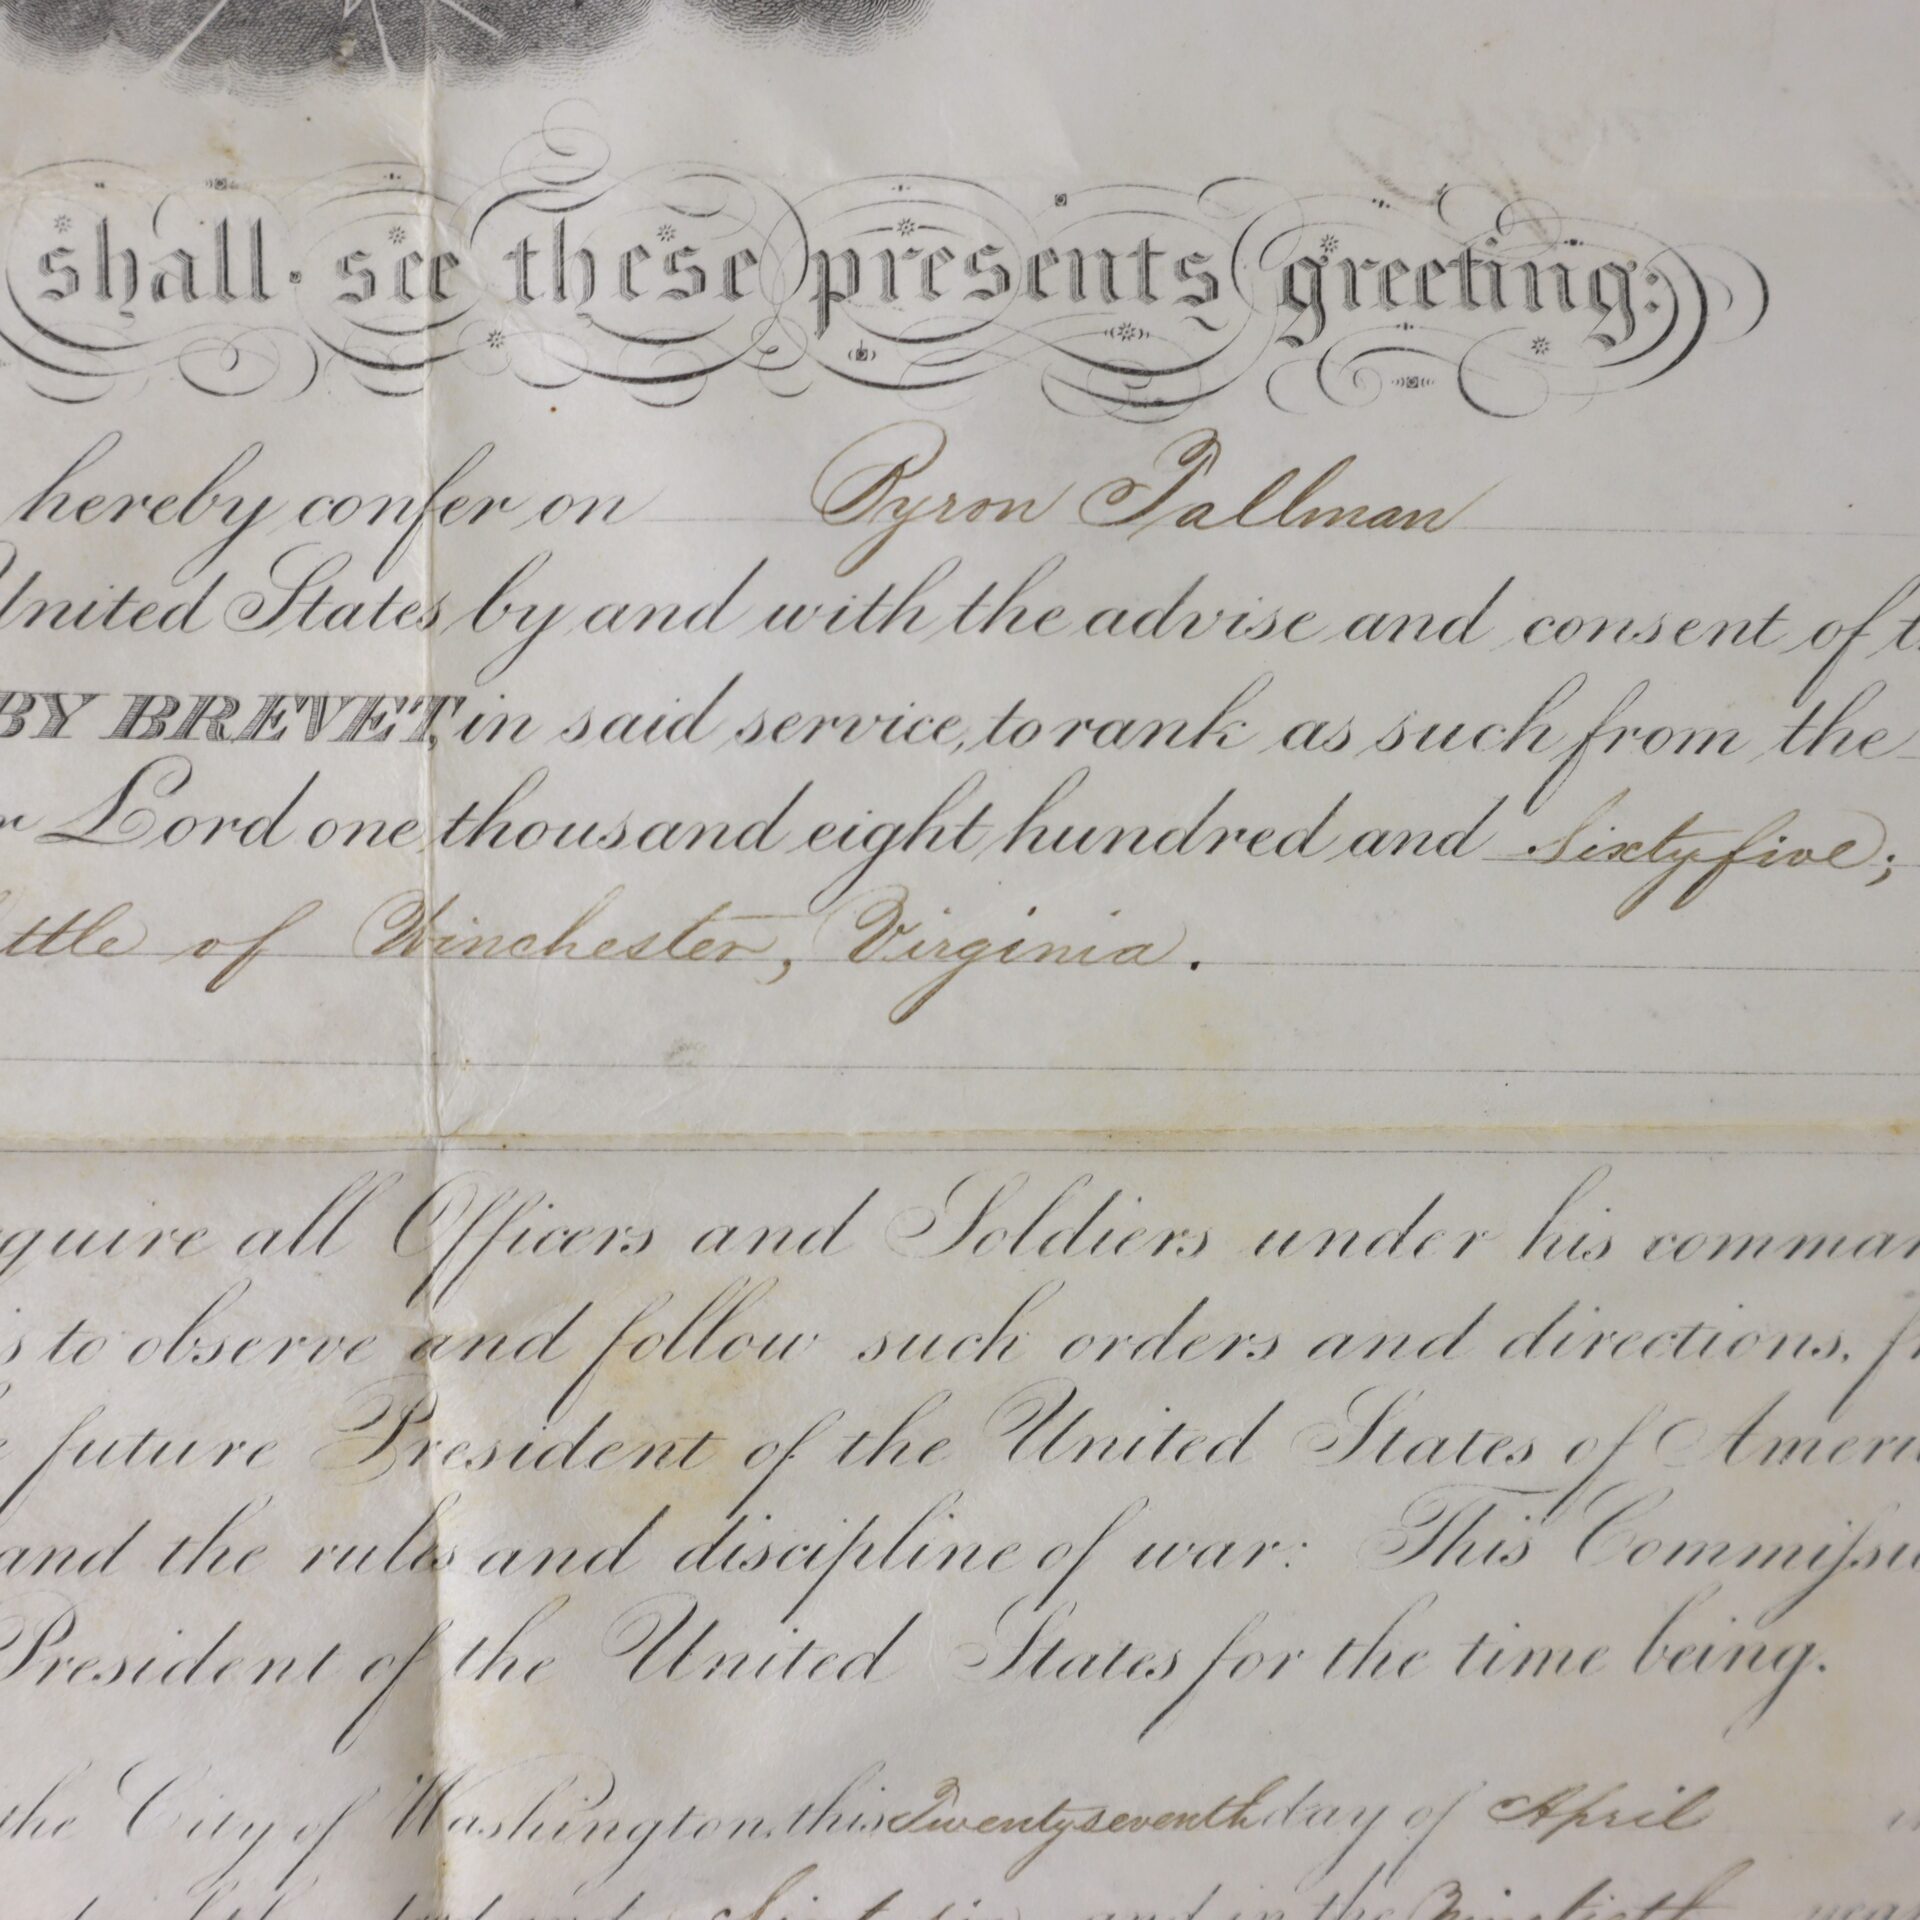 shall see these presents greeting:
hereby confer on Byron Tallman
United States by and with the advise and consent of
BY BREVET, in said service, to rank as such from the
Lord one thousand eight hundred and Sixty five;
ttle of Winchester, Virginia.
quire all Officers and Soldiers under his comman
s to observe and follow such orders and directions,
future President of the United States of Ameri
and the rules and discipline of war: This Commissi
President of the United States for the time being.
the City of Washington, this Twenty seventh day of April
and in the Ninetieth year